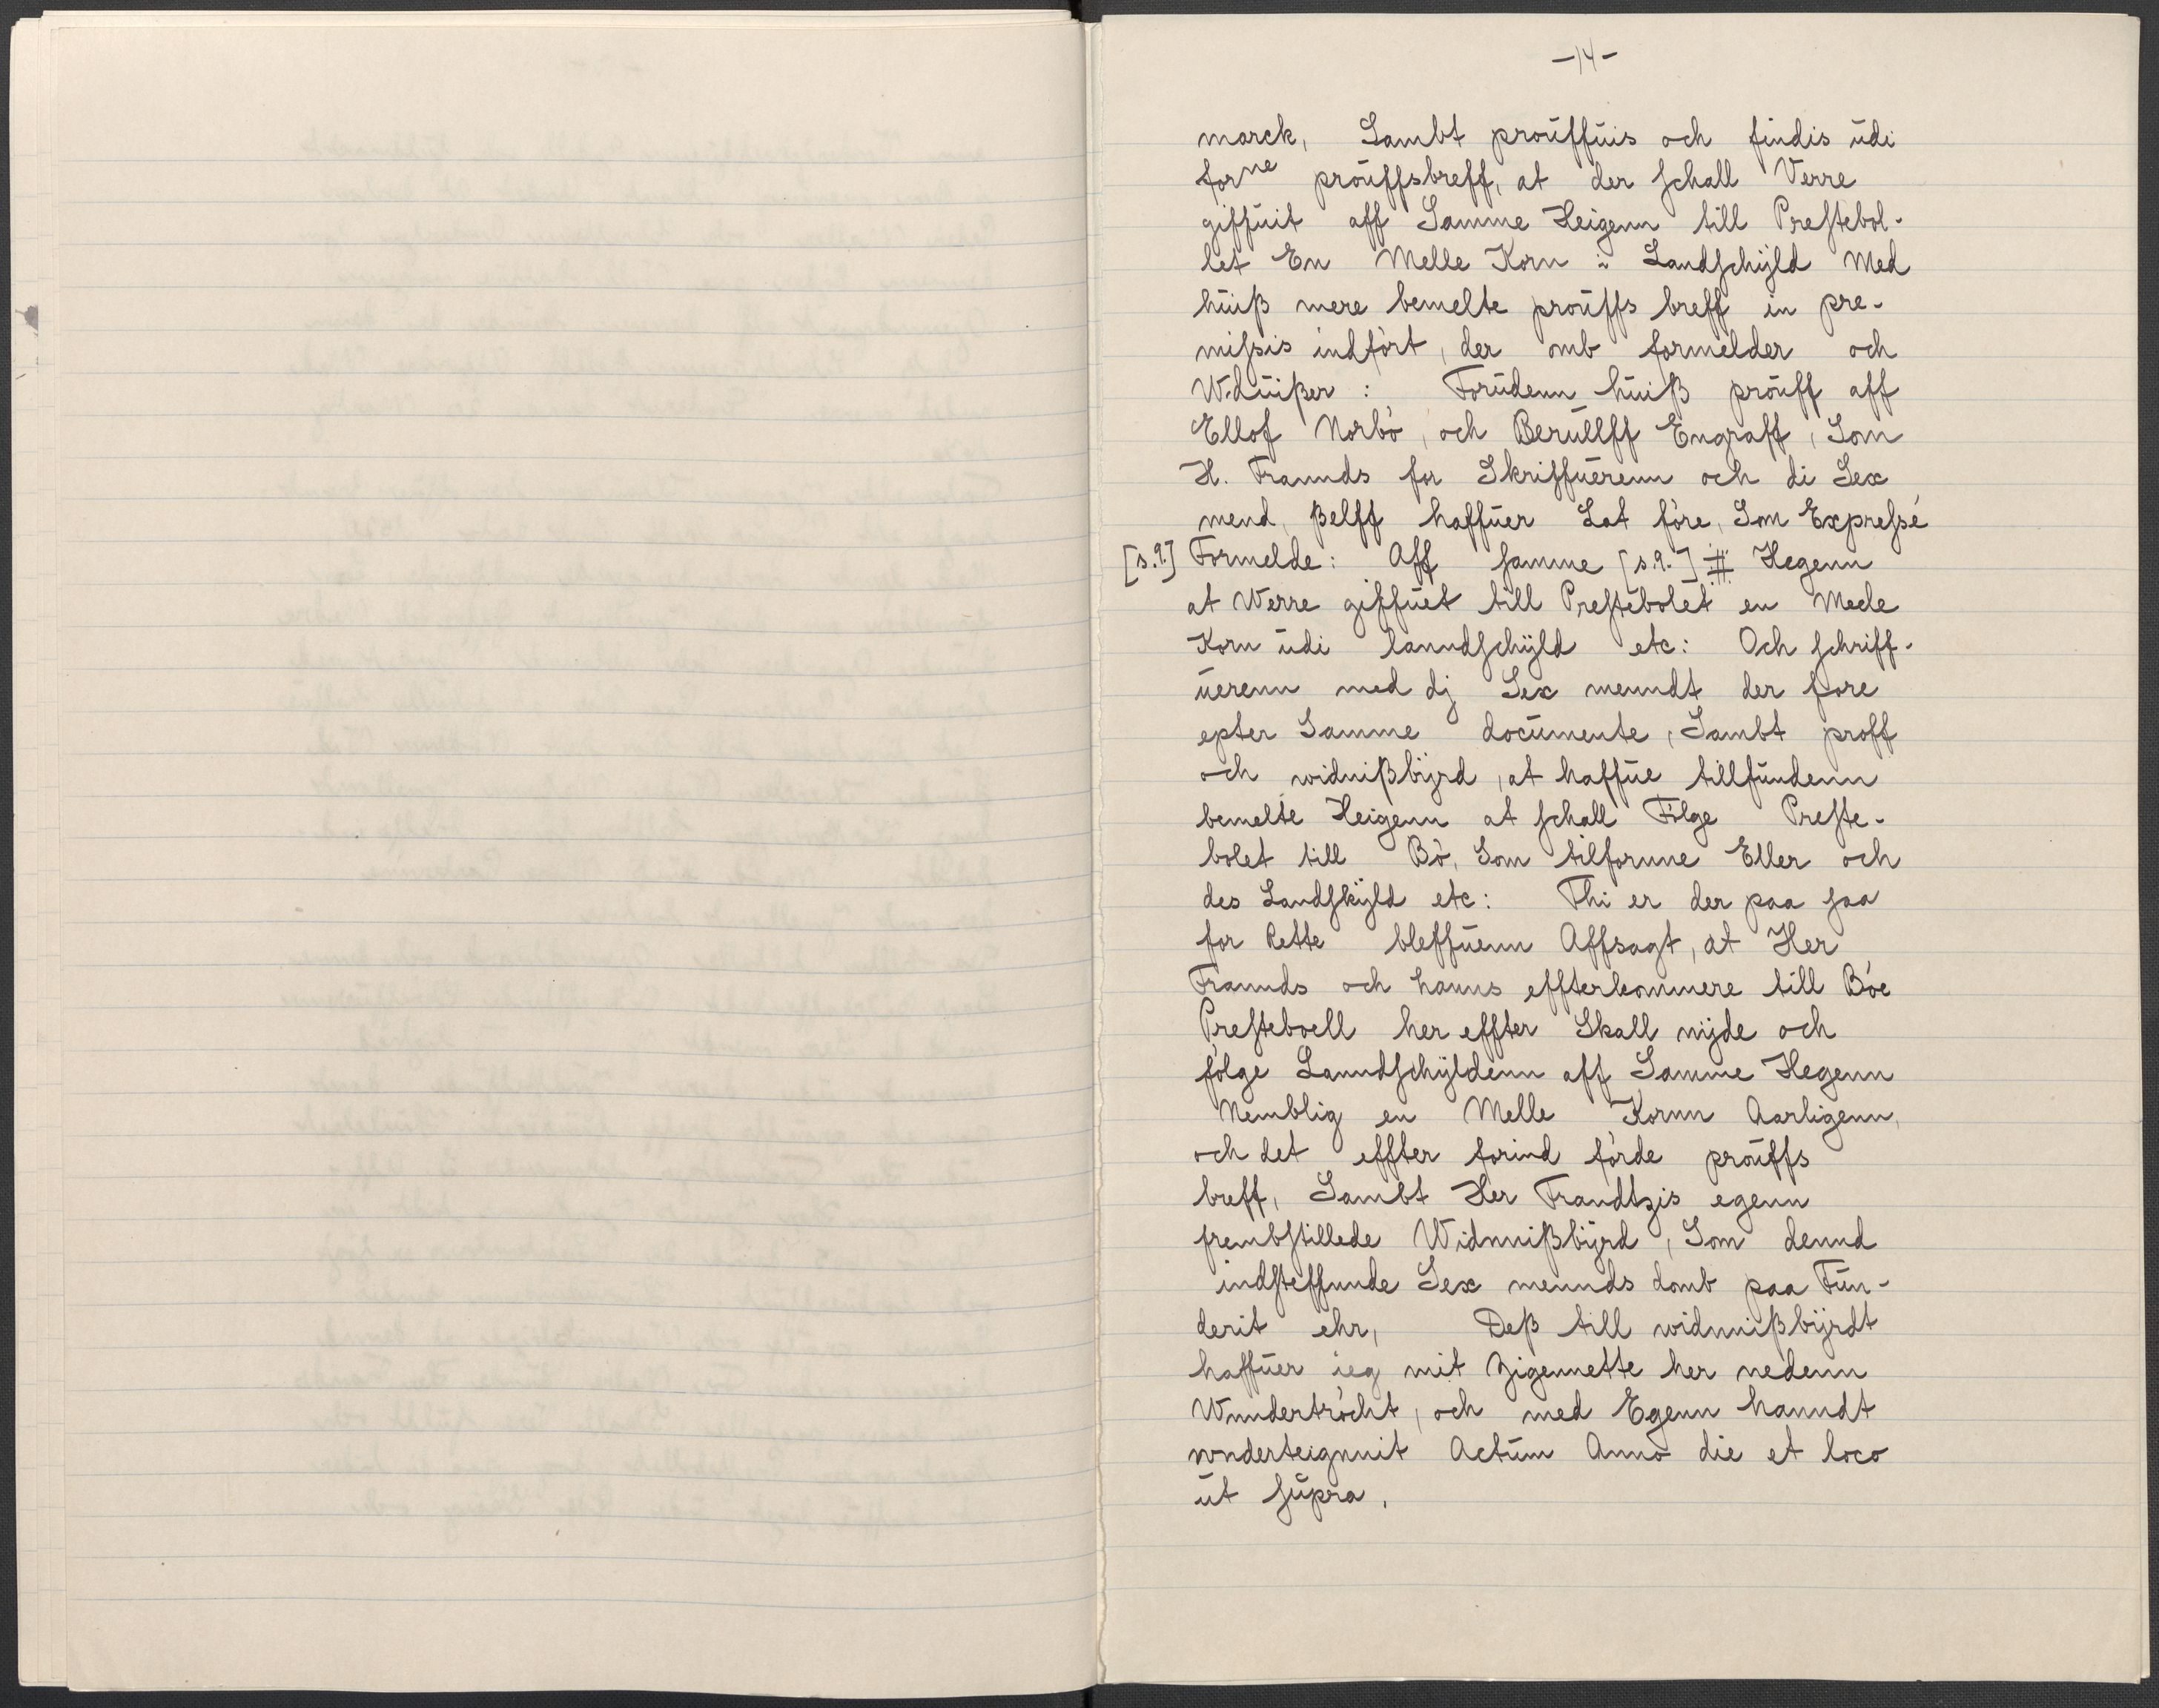 -14-
marck, Sambt proŭffŭis och findis ŭdi
forne proŭffsbreff, at der schall Verre
giffŭit aff Samme Heigenn till Prestebol-
let En Melle Korn i Landschÿld Med
hŭiß mere bemelte proŭffs breff in pre-
missis indfört, der omb formelder och
Wdŭißer : Forŭdenn hŭiß proŭff aff
Ellof Norbó, och Berŭllff Engraff, Som
H. Frannds for Skriffŭerenn och di Sex
mend, ßelff haffŭer Lat före, Som Expresse
[s.9.] Formelde: Aff samme [s.9.] # Hegenn
at Werre giffŭet till Prestebolet en Meele
Korn ŭdi lanndschÿld etc: Och schriff-
ŭerenn med dj Sex menndt der fore
epter Samme documente, Sambt proff
och widnißbÿrd, at haffŭe tillfŭndenn
bemelte Heigenn at schall Fölge Preste-
bolet till Bó, Som tilfornne Eller och
des Landskÿld etc: Thi er der paa saa
for Rette bleffŭenn Affsagt, at Her
Frannds och hanns effterkommere till Bóe
Presteboell her effter Skall nÿde och
fölge Lanndschÿldenn aff Samme Hegenn
Nemblig en Melle Kornn Aarligenn,
och det effter forind förde proŭffs
breff, Sambt Her Frandtzis egenn
frembstillede Widnnißbÿrd, Som dennd
indsteffnnde Sex mennds domb paa Fŭn-
derit ehr, Deß till widnnißbÿrdt
haffŭer ieg mit Zigennette her nedenn
Wnndertröcht, och med Egenn hanndt
wnderteignnit Actŭm Anno die et loco
ŭt sŭpra.